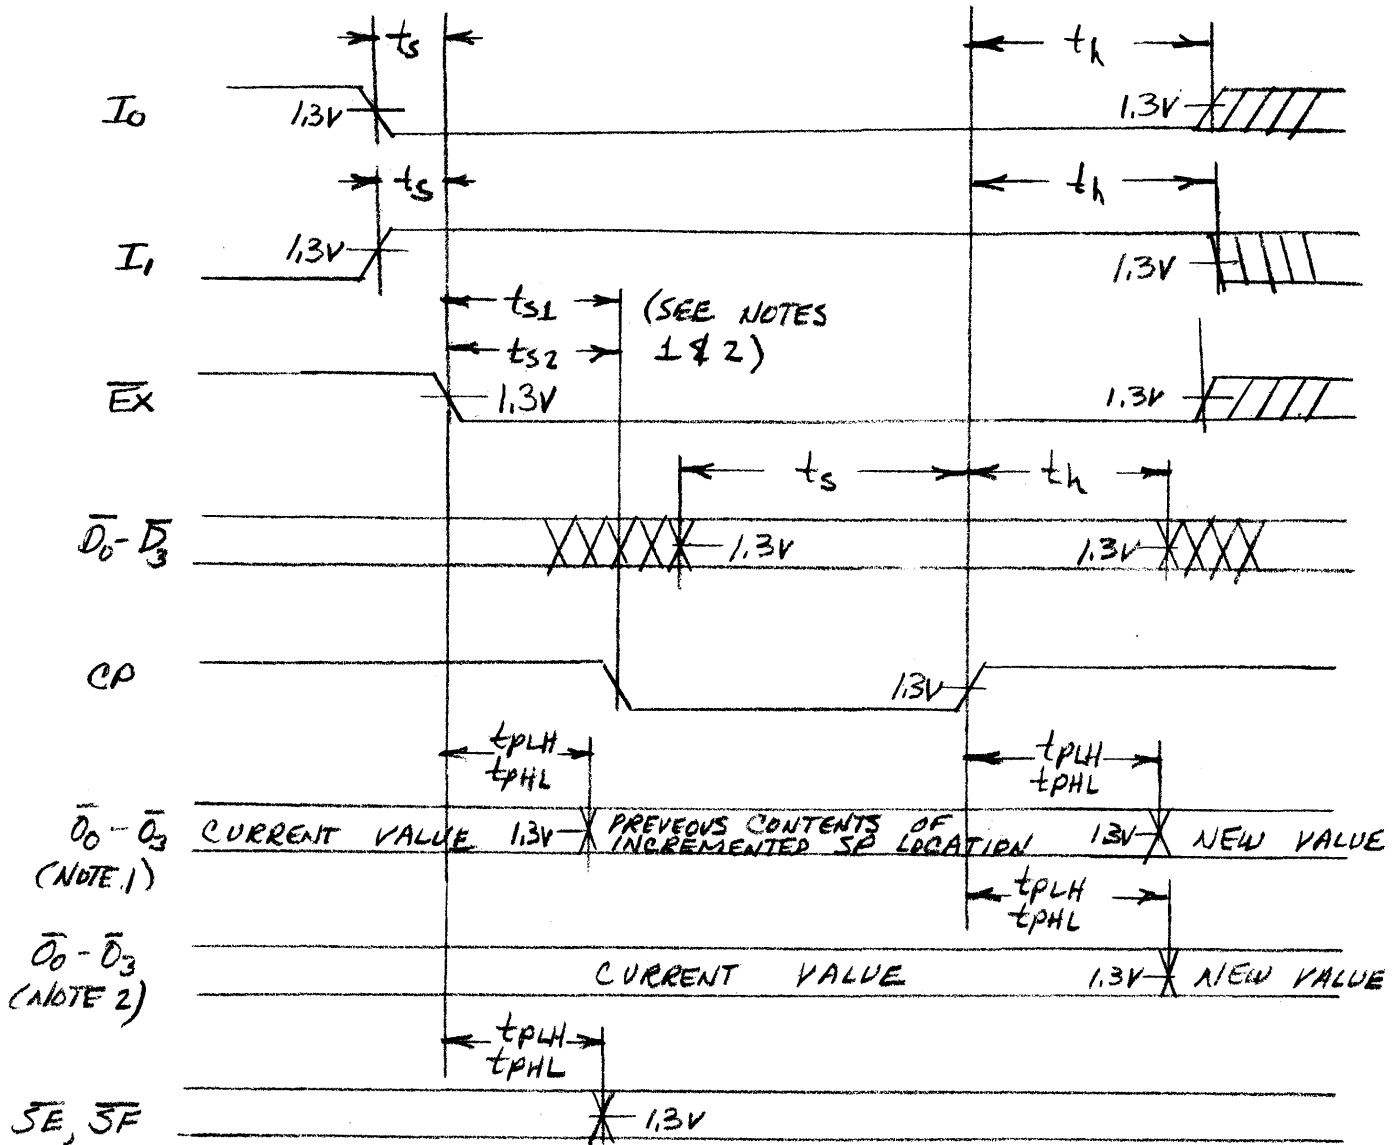 ts
th
I0
1.3V
1.3V
ts
th
I1
1.3V
1.3V
ts1 (SEE NOTES
ts2 1 & 2)
E̅X̅
1.3V
1.3V
ts
th
D̅0-D̅3
1.3V
1.3V
CP
1.3V
tPLH
tPHL
tPLH
tPHL
O̅0-O̅3
(NOTE 1)
CURRENT VALUE
1.3V
PREVEOUS CONTENTS OF
INCREMENTED SP LOCATION
1.3V
NEW VALUE
tPLH
tPHL
O̅0-O̅3
(NOTE 2)
CURRENT VALUE
1.3V
NEW VALUE
tPLH
tPHL
S̅E̅, S̅F̅
1.3V